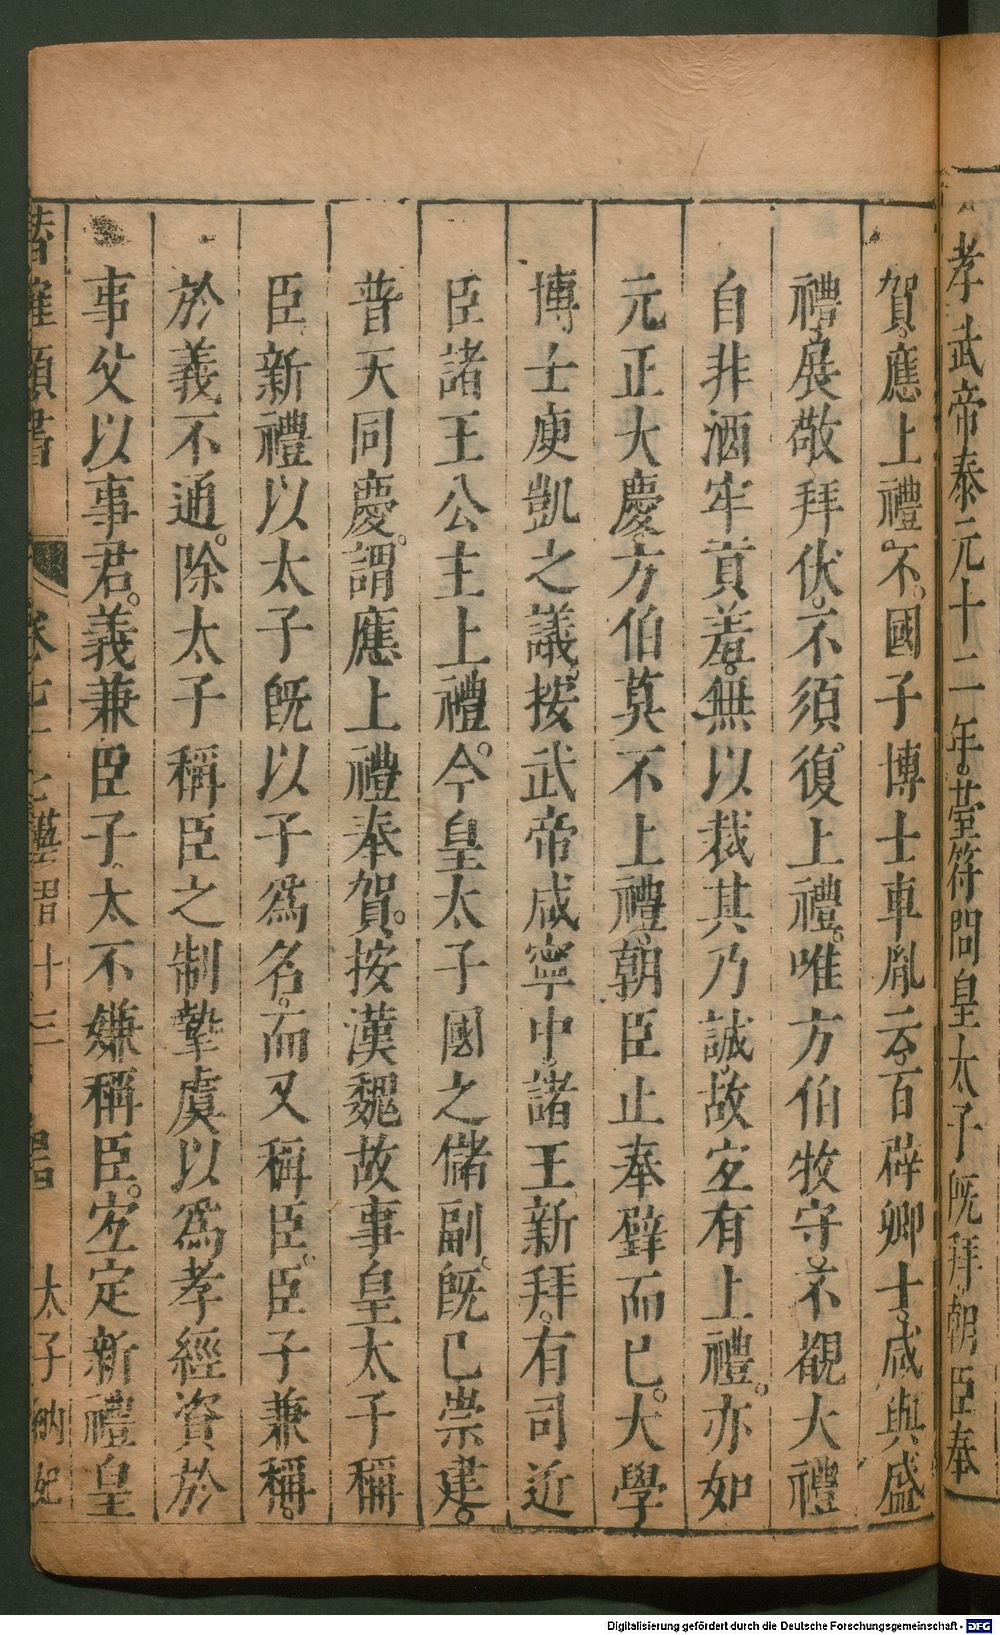 孝武帝泰元十二年。臺符問皇太子旣拜朝臣奉
賀應上禮。不。國子博士車胤云百辟卿士。咸與盛
禮展敬拜伏。不須復上禮。唯方伯牧守不覩大禮
自非酒牢貢羞。無以裁其乃誠故宐有上禮。亦如
元正大慶方伯莫不上禮朝臣止奉璧而已。大學
博士庾凱之議。按武帝咸寧中諸王新拜。有司近
臣諸王公主上禮。今皇太子國之儲副。旣已崇建。
普天同慶。謂應上禮奉賀。按漢魏故事皇太子稱
臣新禮以太子旣以子爲名。而又稱臣。臣子兼稱。
於義不通。除太子稱臣之制摯虞以爲孝經資於
事父以事君。義兼臣子太不嫌稱臣。宐定新禮皇
太子納妃
Digitalisierung gefördert durch die Deutsche Forschungsgemeinschaft - DFG